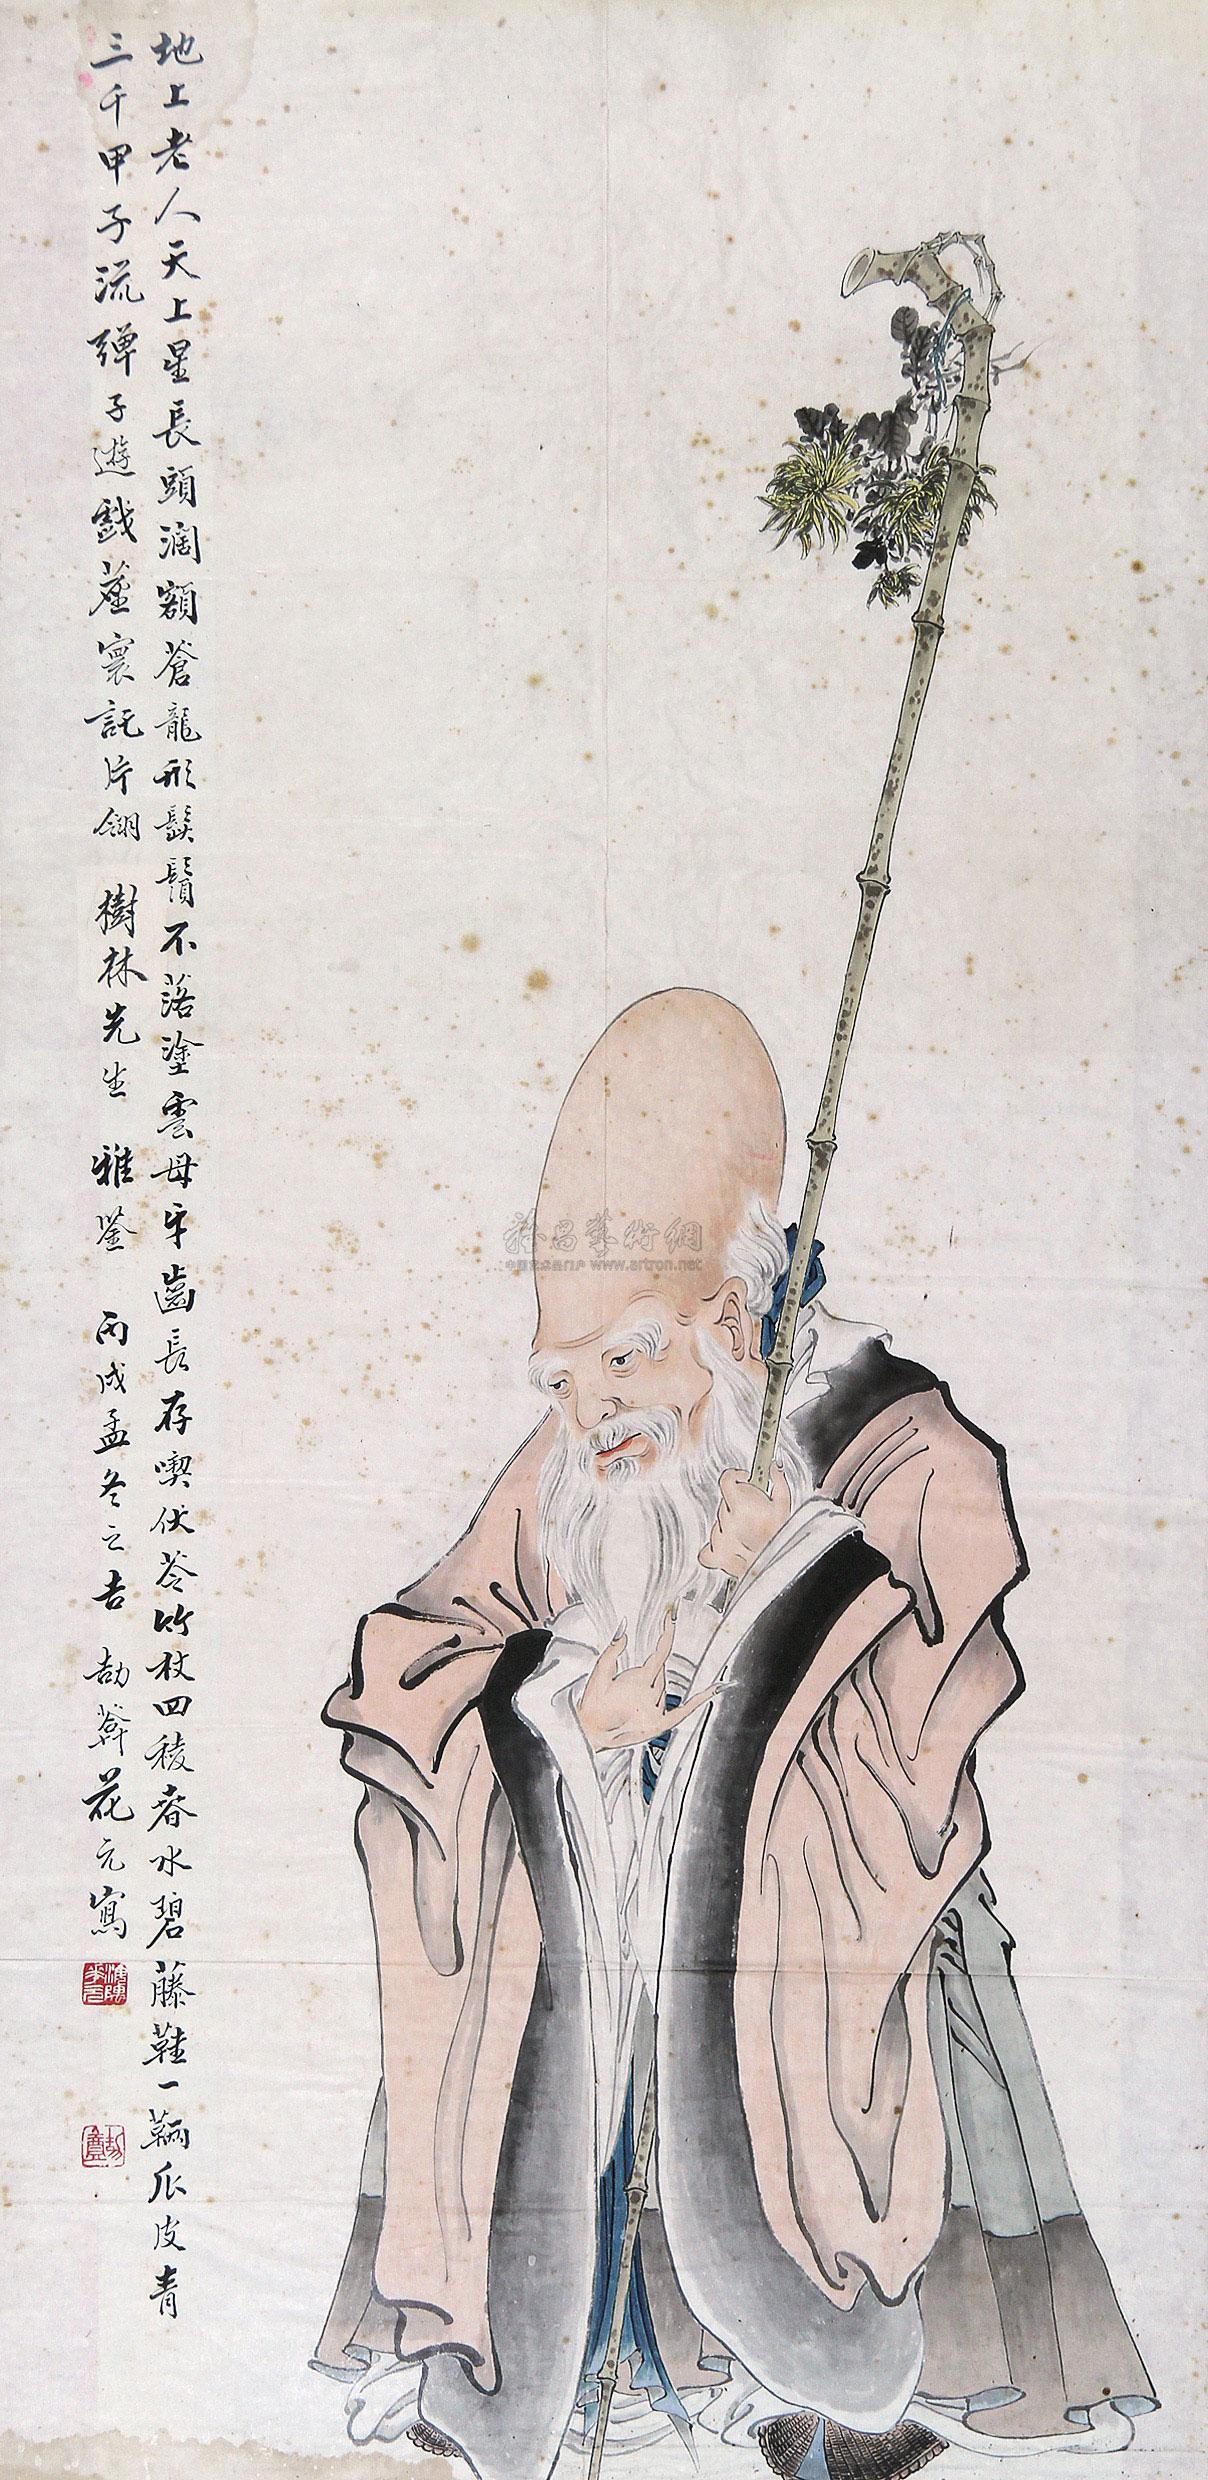 地上老人天上星長頭濶額蒼龍形鬚鬢不落塗雲母牙齒長存喫伏苓竹杖四稜春水碧藤鞋一輛爪皮青
三千甲子流彈子遊戲塵寰託片翎 樹林先生 雅鑒 丙戌孟冬之吉 劫葊花元寫
雅昌藝術網
中国艺术品门户 www.artron.net